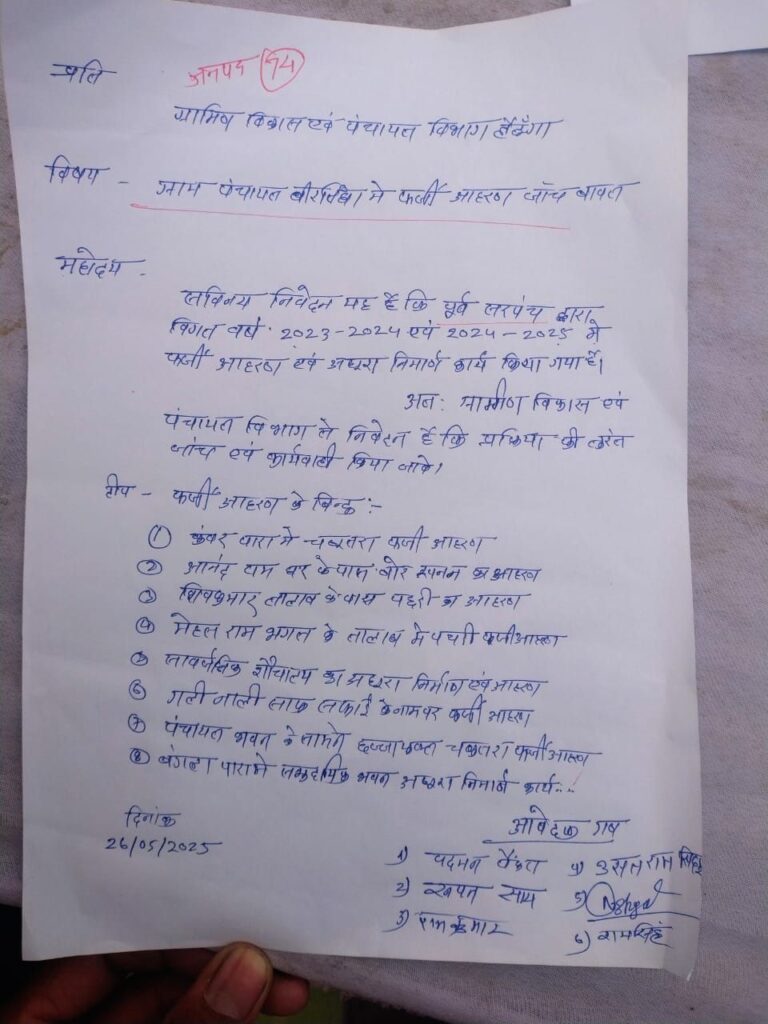 प्रति
जनपद 74
ग्रामिण विकास एवं पंचायत विभाग लैलूँगा
विषय - ग्राम पंचायत बीरसिंघा मे फर्जी आहरण जाँच बावत
महोदय -
सविनय निवेदन यह है कि पूर्व सरपंच द्वारा
विगत वर्ष 2023-2024 एवं 2024-2025 मे
फर्जी आहरण एवं अधूरा निमार्ण कार्य किया गया है।
अत: ग्रामीण विकास एवं
पंचायत विभाग से निवेदन है कि प्रक्रिया की तुरंत
जांच एवं कार्यवाही किया जावे।
टीप - फर्जी आहरण के बिन्दु :-
① कंवर पारा मे चबूतरा फर्जी आहरण
② आनंद राम घर के पास बोर खनन का आहरण
③ शिवकुमार तालाब के पास पचरी का आहरण
④ मेहत्तर राम भगत के तालाब मे पचरी फर्जी आहरण
⑤ सार्वजनिक शौचालय का अधूरा निर्माण एवं आहरण
⑥ गली नाली साफ सफाई के नाम पर फर्जी आहरण
⑦ पंचायत भवन के सामने छज्जायुक्त चबूतरा फर्जी आहरण
⑧ बंगला पारा मे सामुदायिक भवन अधूरा निमार्ण कार्य..
दिनांक
26/05/2025
आवेदक गण
1)
4)
2) साय
5)
3) रामकुमार
6) रामसिंह